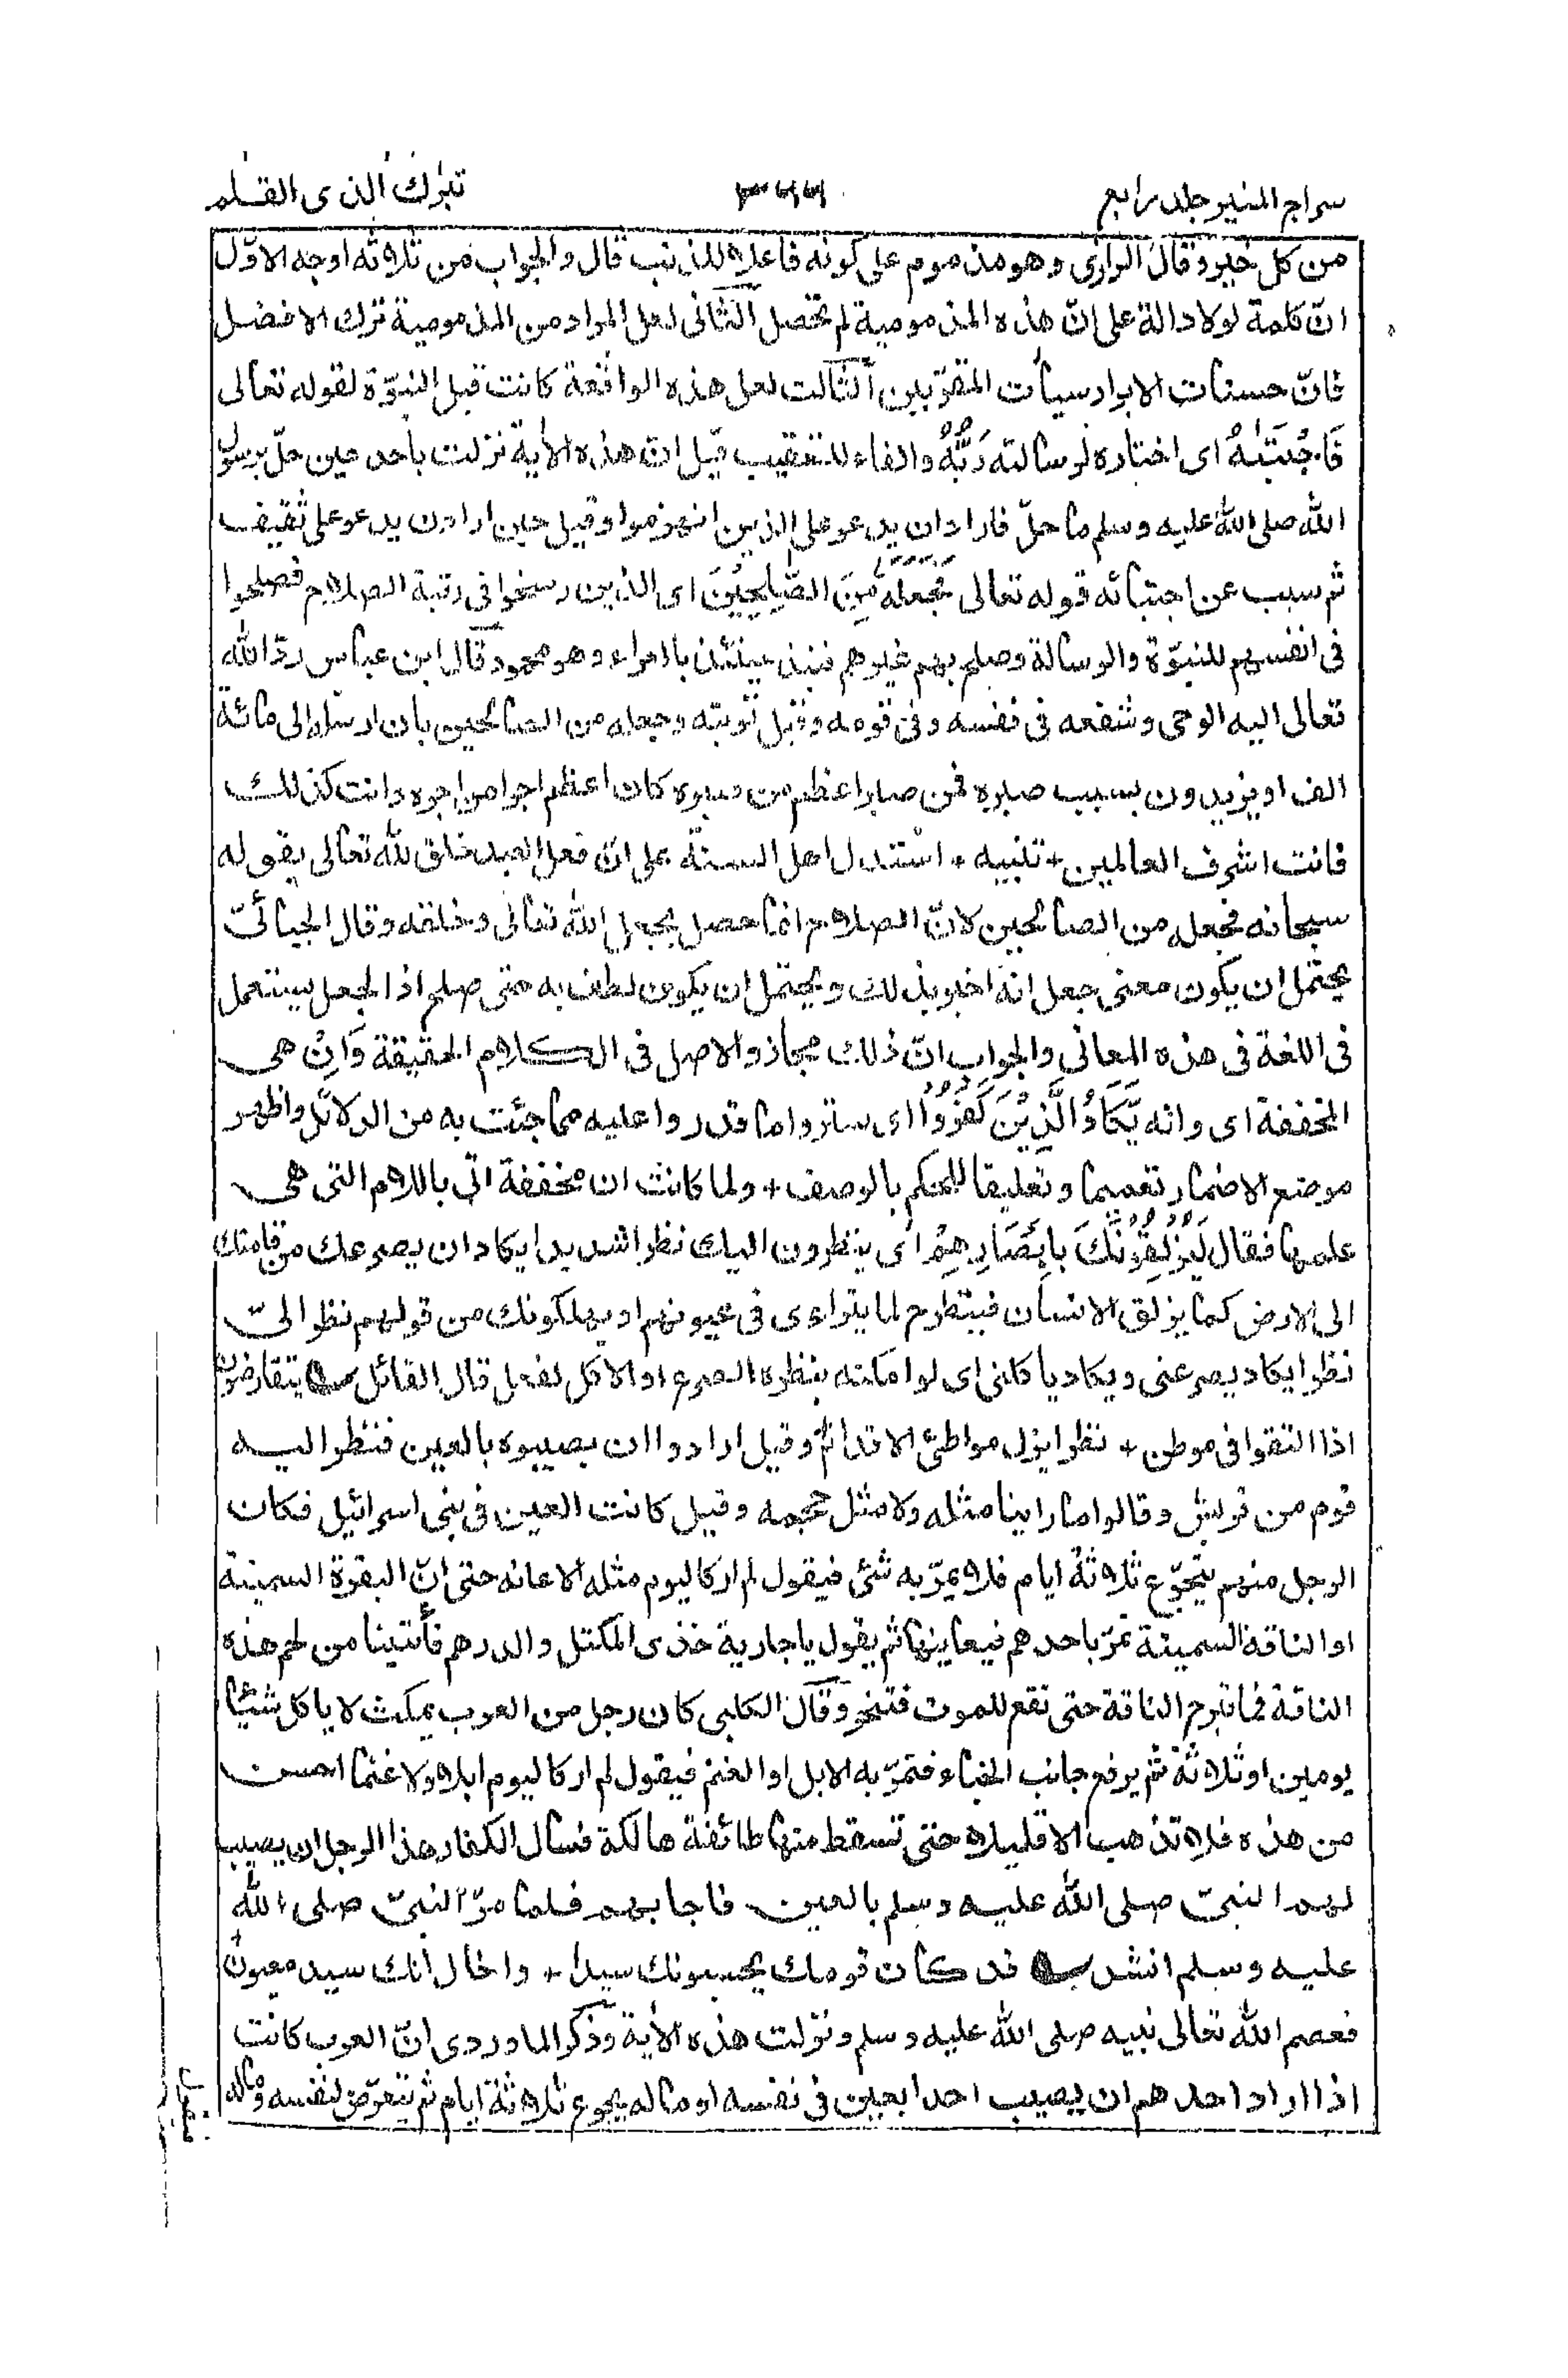 سراج المنير جلد رابع ٣٦٦ تبٰرك الذى القلم
من كل خير وقال الرازى وهو مذموم على كونه فاعلا للذنب قال والجواب من ثلاثة اوجه الاوّل
انّ كلمة لولا دالة على انّ هذه المذمومية لم تحصل الثانى لعل المراد من المذمومية ترك الافضل
فانّ حسنات الابرار سيأت المقرّبين الثالث لعل هذه الواقعة كانت قبل النبوّة لقوله تعالى
فَاجْتَبٰىهُ اى اختاره لرسالته رَبُّهُ والفاء للتعقيب قيل ان هذه الأية نزلت باحد حين حلّ برسول
الله صلى الله عليه وسلم ما حلّ فاراد ان يدعو على الذين انهزموا وقيل حين اراد ان يدعو على ثقيف
ثم سبب عن اجتبائه قوله تعالى فَجَعَلَهٗ مِنَ الصّٰلِحِيْنَ اى الذين رسخوا فى رتبة الصلاح فصلحوا
فى انفسهم للنبوّة والرسالة وصلح بهم غيرهم فنبذ حينئذ بالعراء وهو محمود قال ابن عباس ردّ الله
تعالى اليه الوحى وشفعه فى نفسه وفى قومه وقبل توبته وجعله من الصالحين بان ارسله الى مائة
الف او يزيدون بسبب صبره فمن صبر اعظم من صبره كان اعظم اجرا من اجره وانت كذلك
فانت اشرف العالمين + تنبيه + استدل اهل السنة على انّ فعل العبد خلق لله تعالى بقوله
سبحانه فجعله من الصالحين لانّ الصلاح انما حصل بجعل الله تعالى وخلقه وقال الجبائىّ
يحتمل ان يكون معنى جعل انه اخبر بذلك ويحتمل ان يكون لطف به حتى صلح اذ الجعل يستعمل
فى اللغة فى هذه المعانى والجواب انّ ذلك مجاز والاصل فى الكلام الحقيقة وَاِنْ هى
المخففة اى وانه يَّكَادُ الَّذِيْنَ كَفَرُوْا اى ستروا ما قدروا عليه مما جئت به من الدلائل واظهر
موضع الاضمار تعميما وتعليقا للحكم بالوصف + ولما كانت ان مخففة اتى باللام التى هى
علمها فقال لَيُزْلِقُوْنَكَ بِاَبْصَارِهِمْ اى ينظرون اليك نظرا شديدا يكاد ان يصرعك من قامتك
الى الارض كما يزلق الانسان فينطرح لما يتراءى فى عيونهم او يهلكونك من قولهم نظر الىّ
نظرا يكاد يصرعنى ويكاد ياكلنى اى لو امكنه بنظره الصرع او الاكل لفعل قال القائل يتقارضون
اذا التقوا فى موطن + نظرا يزل مواطئ الاقدام وقيل ارادوا ان يصيبوه بالعين فنظر اليه
قوم من قريش وقالوا ما راينا مثله ولا مثل حججه وقيل كانت العين فى بنى اسرائيل فكان
الرجل منهم يتجوّع ثلاثة ايام فلا يمرّ به شئ فيقول لم ار كاليوم مثله الا عانه حتى انّ البقرة السمينة
او الناقة السمينة تمرّ باحدهم فيعاينها ثم يقول يا جارية خذى المكتل والدرهم فأتينا من لحم هذه
الناقة فما تبرح الناقة حتى تقع للموت فتنحر وقال الكلبى كان رجل من العرب يمكث لا ياكل شيئا
يومين او ثلاثة ثم يرفع جانب الخباء فتمرّ به الابل او الغنم فيقول لم ار كاليوم ابلا ولا غنما احسن
من هذه فلا تذهب الا قليلا حتى تسقط منها طائفة هالكة فسأل الكفار هذا الرجل ان يصيب
لهم النبىّ صلى الله عليه وسلم بالعين فاجابهم فلما مرّ النبىّ صلى الله
عليه وسلم انشد قد كان قومك يحسبونك سيدا + واخال انك سيد معيون
فعصم الله تعالى نبيه صلى الله عليه وسلم ونزلت هذه الأية وذكر الماوردى انّ العرب كانت
اذا اراد احدهم ان يصيب احدا بعين فى نفسه او ماله يجوع ثلاثة ايام ثم يتعرّض لنفسه وماله